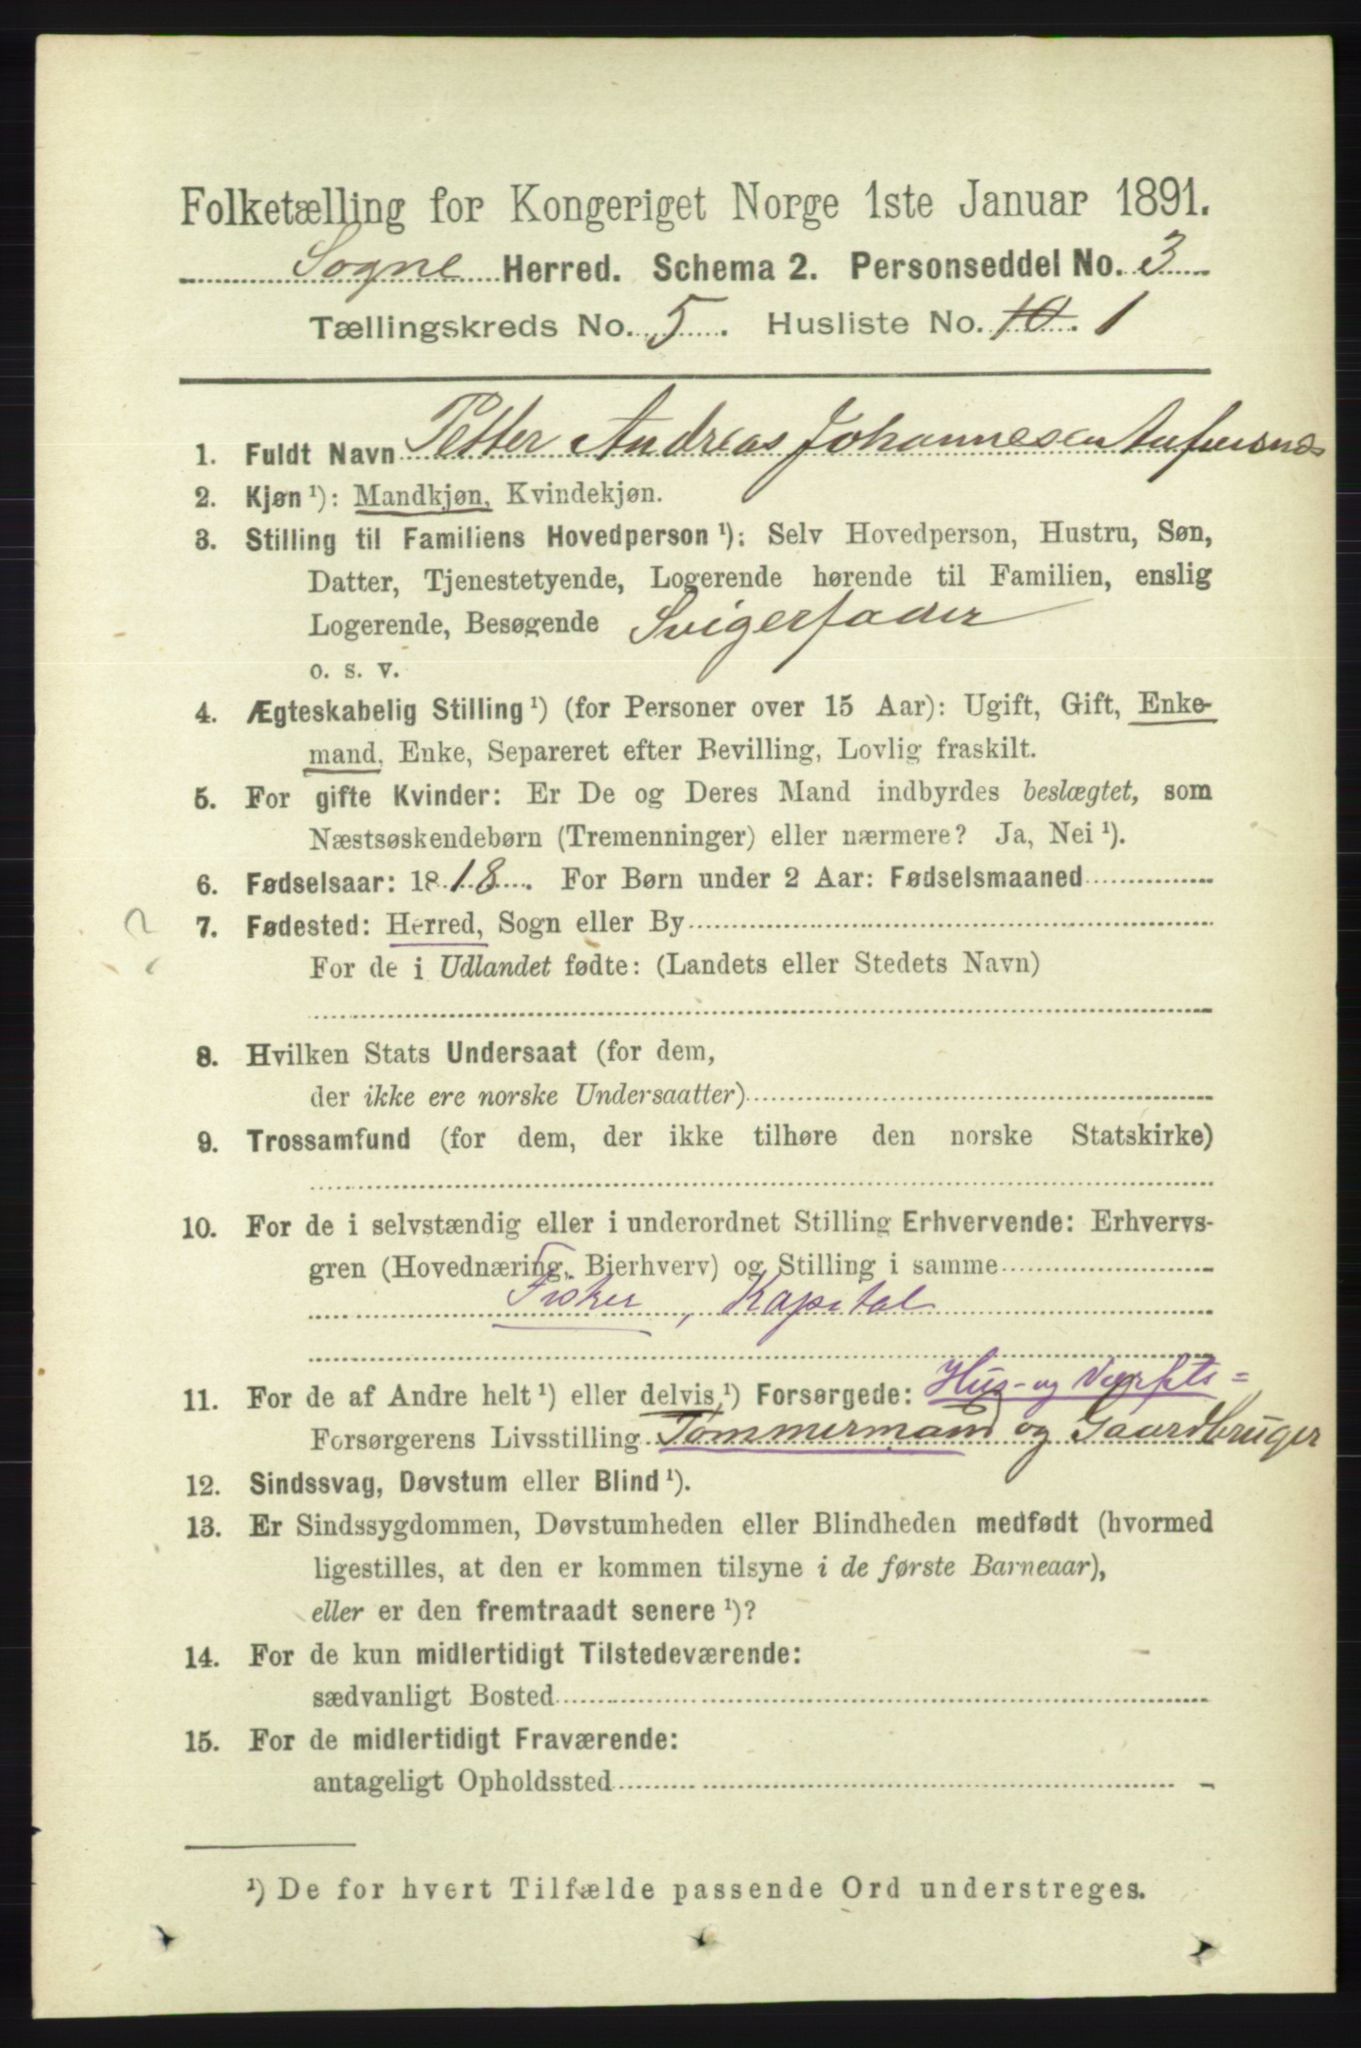 Folketælling for Kongeriget Norge 1ste Januar 1891.
Sogne Herred. Schema 2. Personseddel No. 3
Tællingskreds No. 5. Husliste No. 10. 1
1. Fuldt Navn Petter Andreas Johannesen
2. Kjøn ¹): Mandkjøn, Kvindekjøn.
3. Stilling til Familiens Hovedperson ¹): Selv Hovedperson, Hustru, Søn,
Datter, Tjenestetyende, Logerende hørende til Familien, enslig
Logerende, Besøgende Svigerfader
o. s. v.
4. Ægteskabelig Stilling ¹) (for Personer over 15 Aar): Ugift, Gift, Enke-
mand, Enke, Separeret efter Bevilling, Lovlig fraskilt.
5. For gifte Kvinder: Er De og Deres Mand indbyrdes beslægtet, som
Næstsøskendebørn (Tremenninger) eller nærmere? Ja, Nei ¹).
6. Fødselsaar: 1818. For Børn under 2 Aar: Fødselsmaaned
? 7. Fødested: Herred, Sogn eller By
For de i Udlandet fødte: (Landets eller Stedets Navn)
8. Hvilken Stats Undersaat (for dem,
der ikke ere norske Undersaatter)
9. Trossamfund (for dem, der ikke tilhøre den norske Statskirke)
10. For de i selvstændig eller i underordnet Stilling Erhvervende: Erhvervs-
gren (Hovednæring, Bierhverv) og Stilling i samme
Fisker, Kapital
11. For de af Andre helt ¹) eller delvis ¹) Forsørgede: Hus- og Værfts=
Forsørgerens Livsstilling Tømmermand og Gaardbruger
12. Sindssvag, Døvstum eller Blind ¹).
13. Er Sindssygdommen, Døvstumheden eller Blindheden medfødt (hvormed
ligestilles, at den er kommen tilsyne i de første Barneaar),
eller er den fremtraadt senere ¹)?
14. For de kun midlertidigt Tilstedeværende:
sædvanligt Bosted
15. For de midlertidigt Fraværende:
antageligt Opholdssted
¹) De for hvert Tilfælde passende Ord understreges.